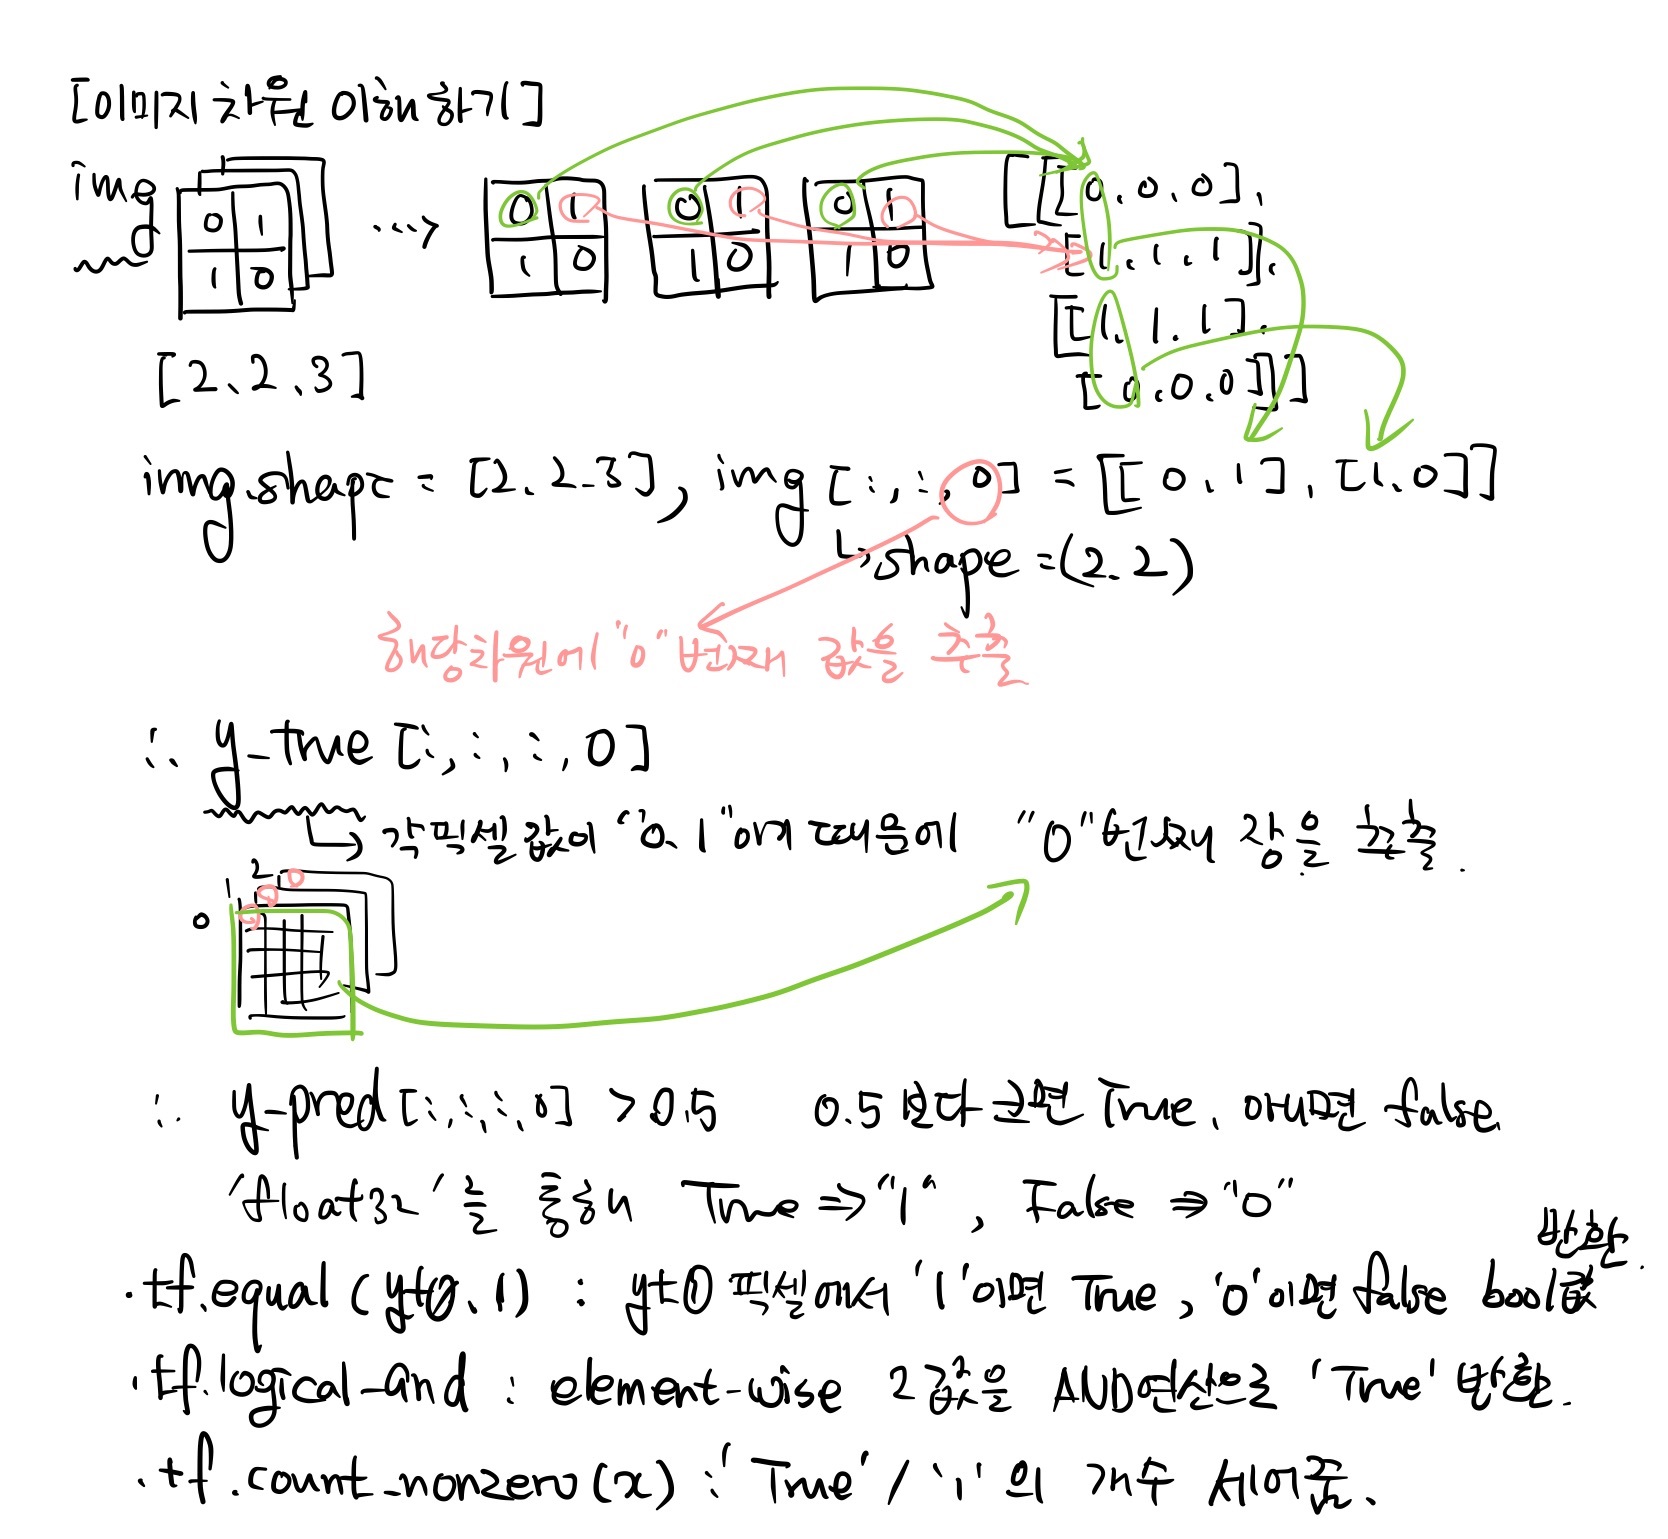 [이미지 차원 이해하기]
img
0 1
1 0
0 1
1 0
0 1
1 0
0 1
1 0
[[[0.0.0].
[1.1.1]].
[[1.1.1].
[0.0.0]]]
[2.2.3]
img.shape = [2.2.3], img[:,:,0] = [[0.1],[1.0]]
↳ shape = (2.2)
해당차원에 "0"번째 값을 추출
∴ y_true [:,:,:,0]
↳ 각 픽셀 값이 "0.1"이기 때문에 "0"번째 장을 추출.
0 1 2
∴ y-pred[:,:,:,0] > 0.5 0.5보다 크면 True, 아니면 false.
'float32'를 통해 True ⇒ "1", False ⇒ "0"
·tf.equal (yt0.1) : yt0 픽셀에서 '1'이면 True, '0'이면 false bool값 반환.
·tf.logical_and : element-wise 2값을 AND연산으로 'True' 반환.
·tf.count_nonzero(x) : 'True' / '1'의 개수 세어줌.